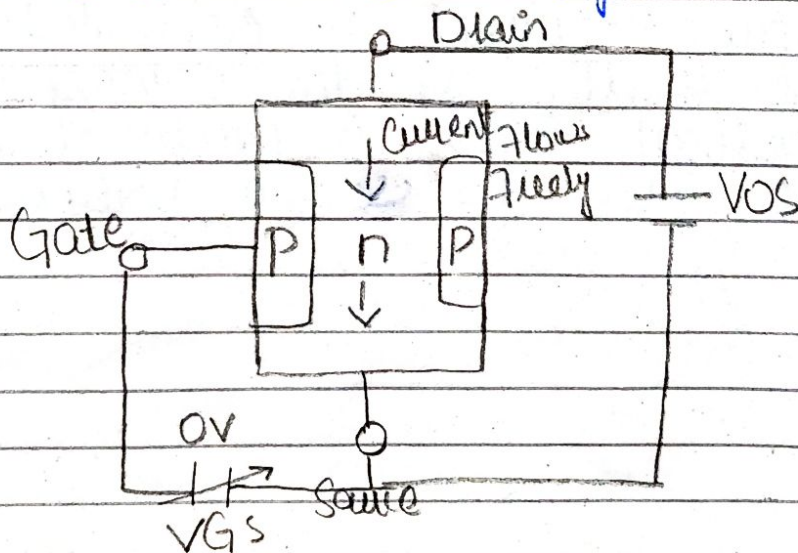 Drain
Current Flows
Freely
VDS
Gate
P n P
0V
Source
VGS